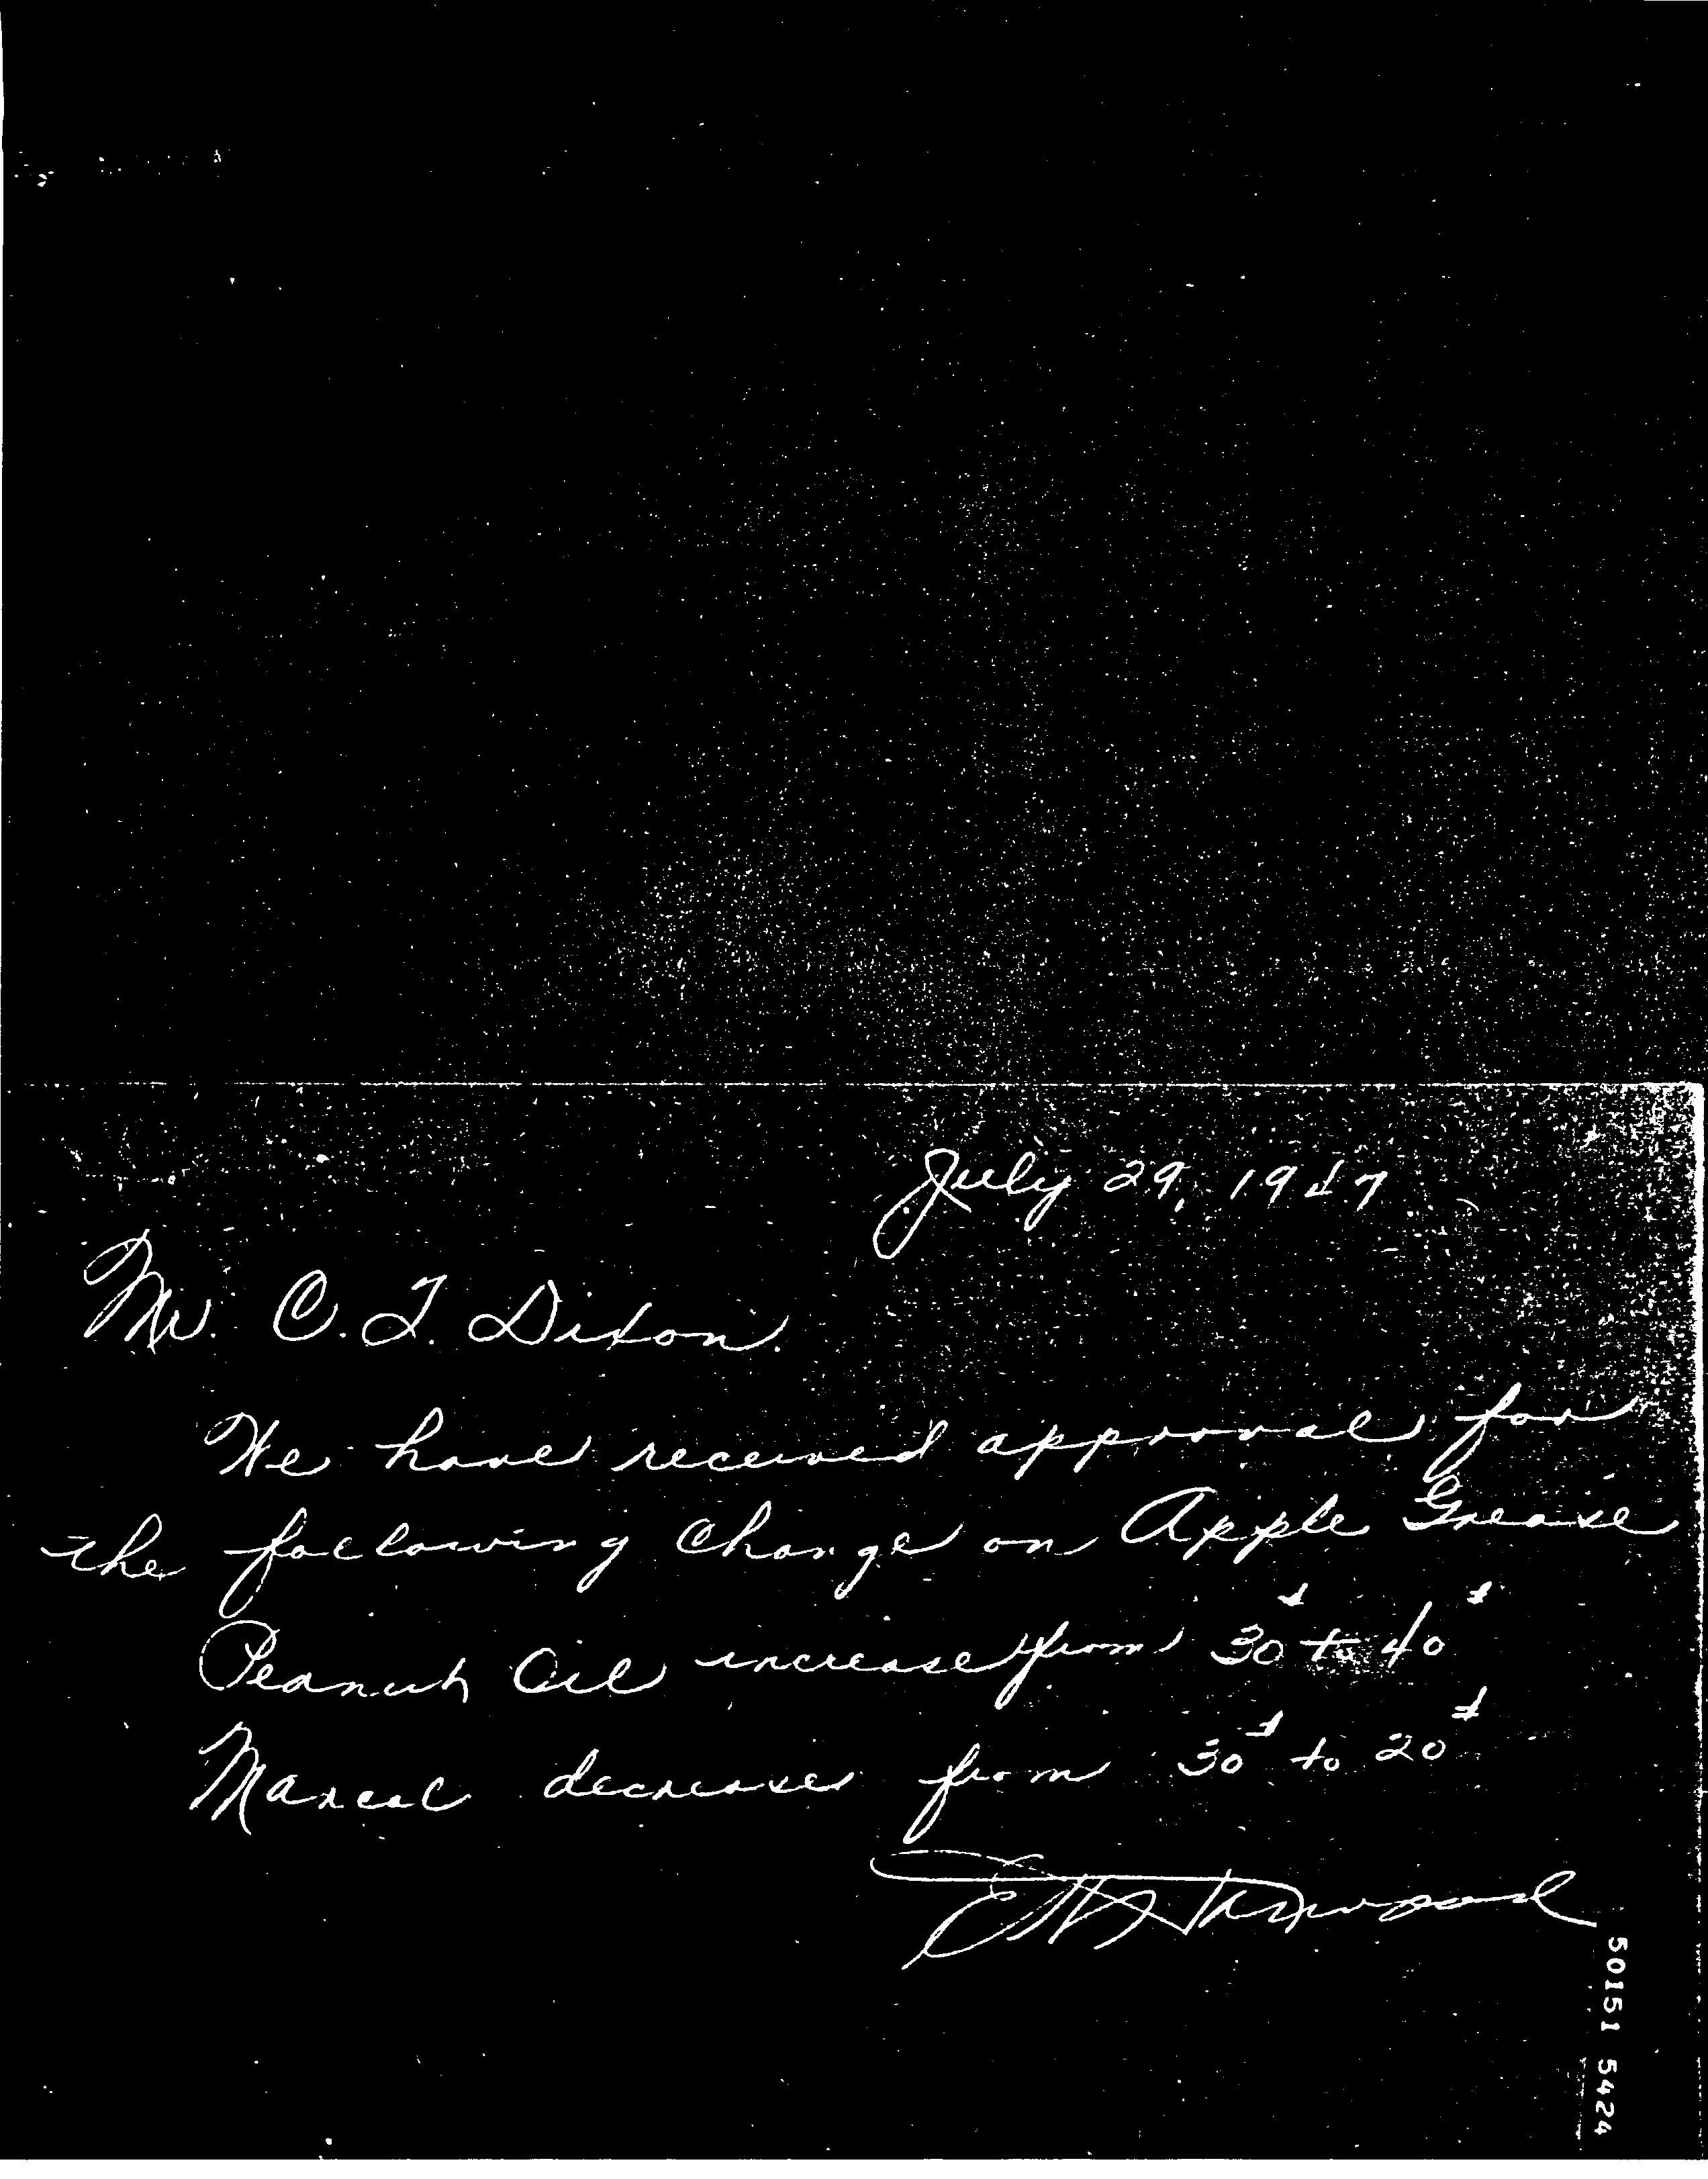 July 29, 1947
Mr. C. T. Dixon.
We have received approval for
the following change on Apple Grease
Peanut Oil increase from 30# to 40#
Marcol decrease from 30# to 20#
50151 5424